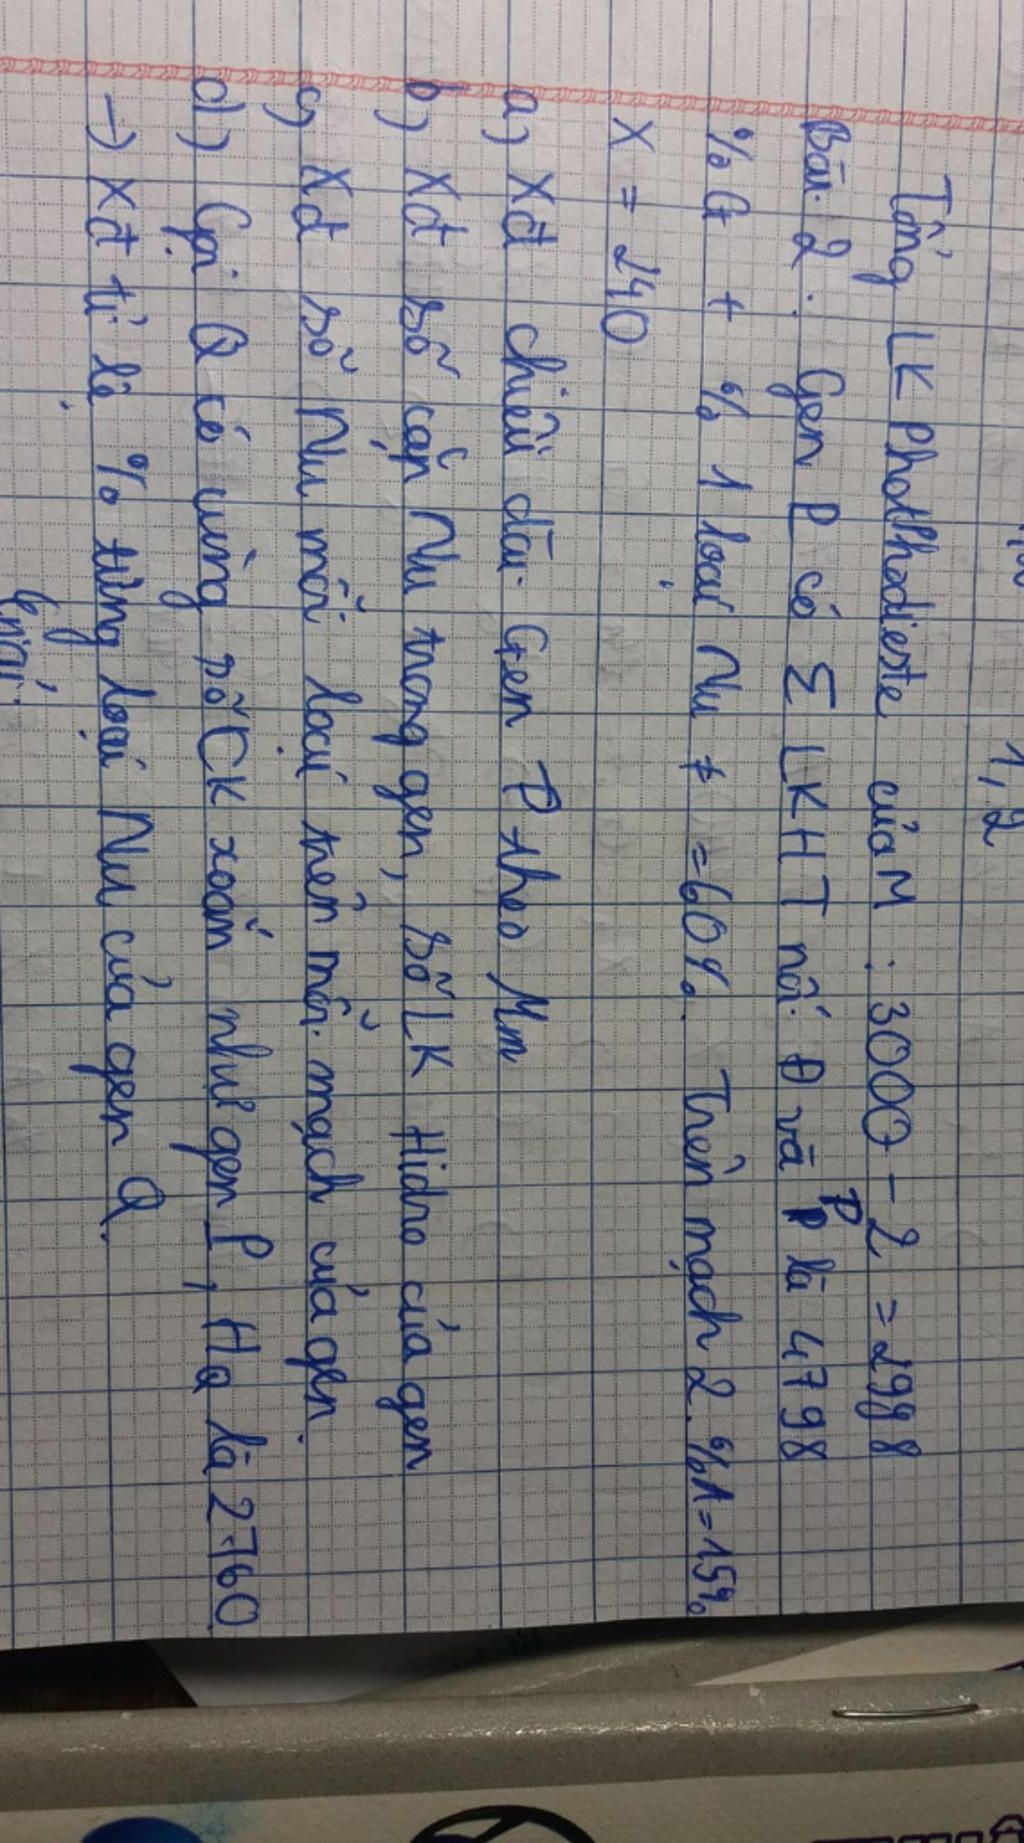 1,2
Tổng LK Phothhodieste của M : 3000 - 2 = 2998
Bài 2 : Gen P có Σ LKHT nối Đ và P là 4798
%G + % 1 loại Nu ≠ = 60%. Trên mạch 2. %A = 15%
X = 240
a) Xđ chiều dài Gen P theo Mm
b) Xđ số cặp Nu trong gen, số LK Hidro của gen
c) Xđ số Nu mỗi loại trên mỗi mạch của gen.
d) Gọi Q có cùng số CK xoắn như gen P, HQ là 2760
→ Xđ tỉ lệ % từng loại Nu của gen Q.
Giải